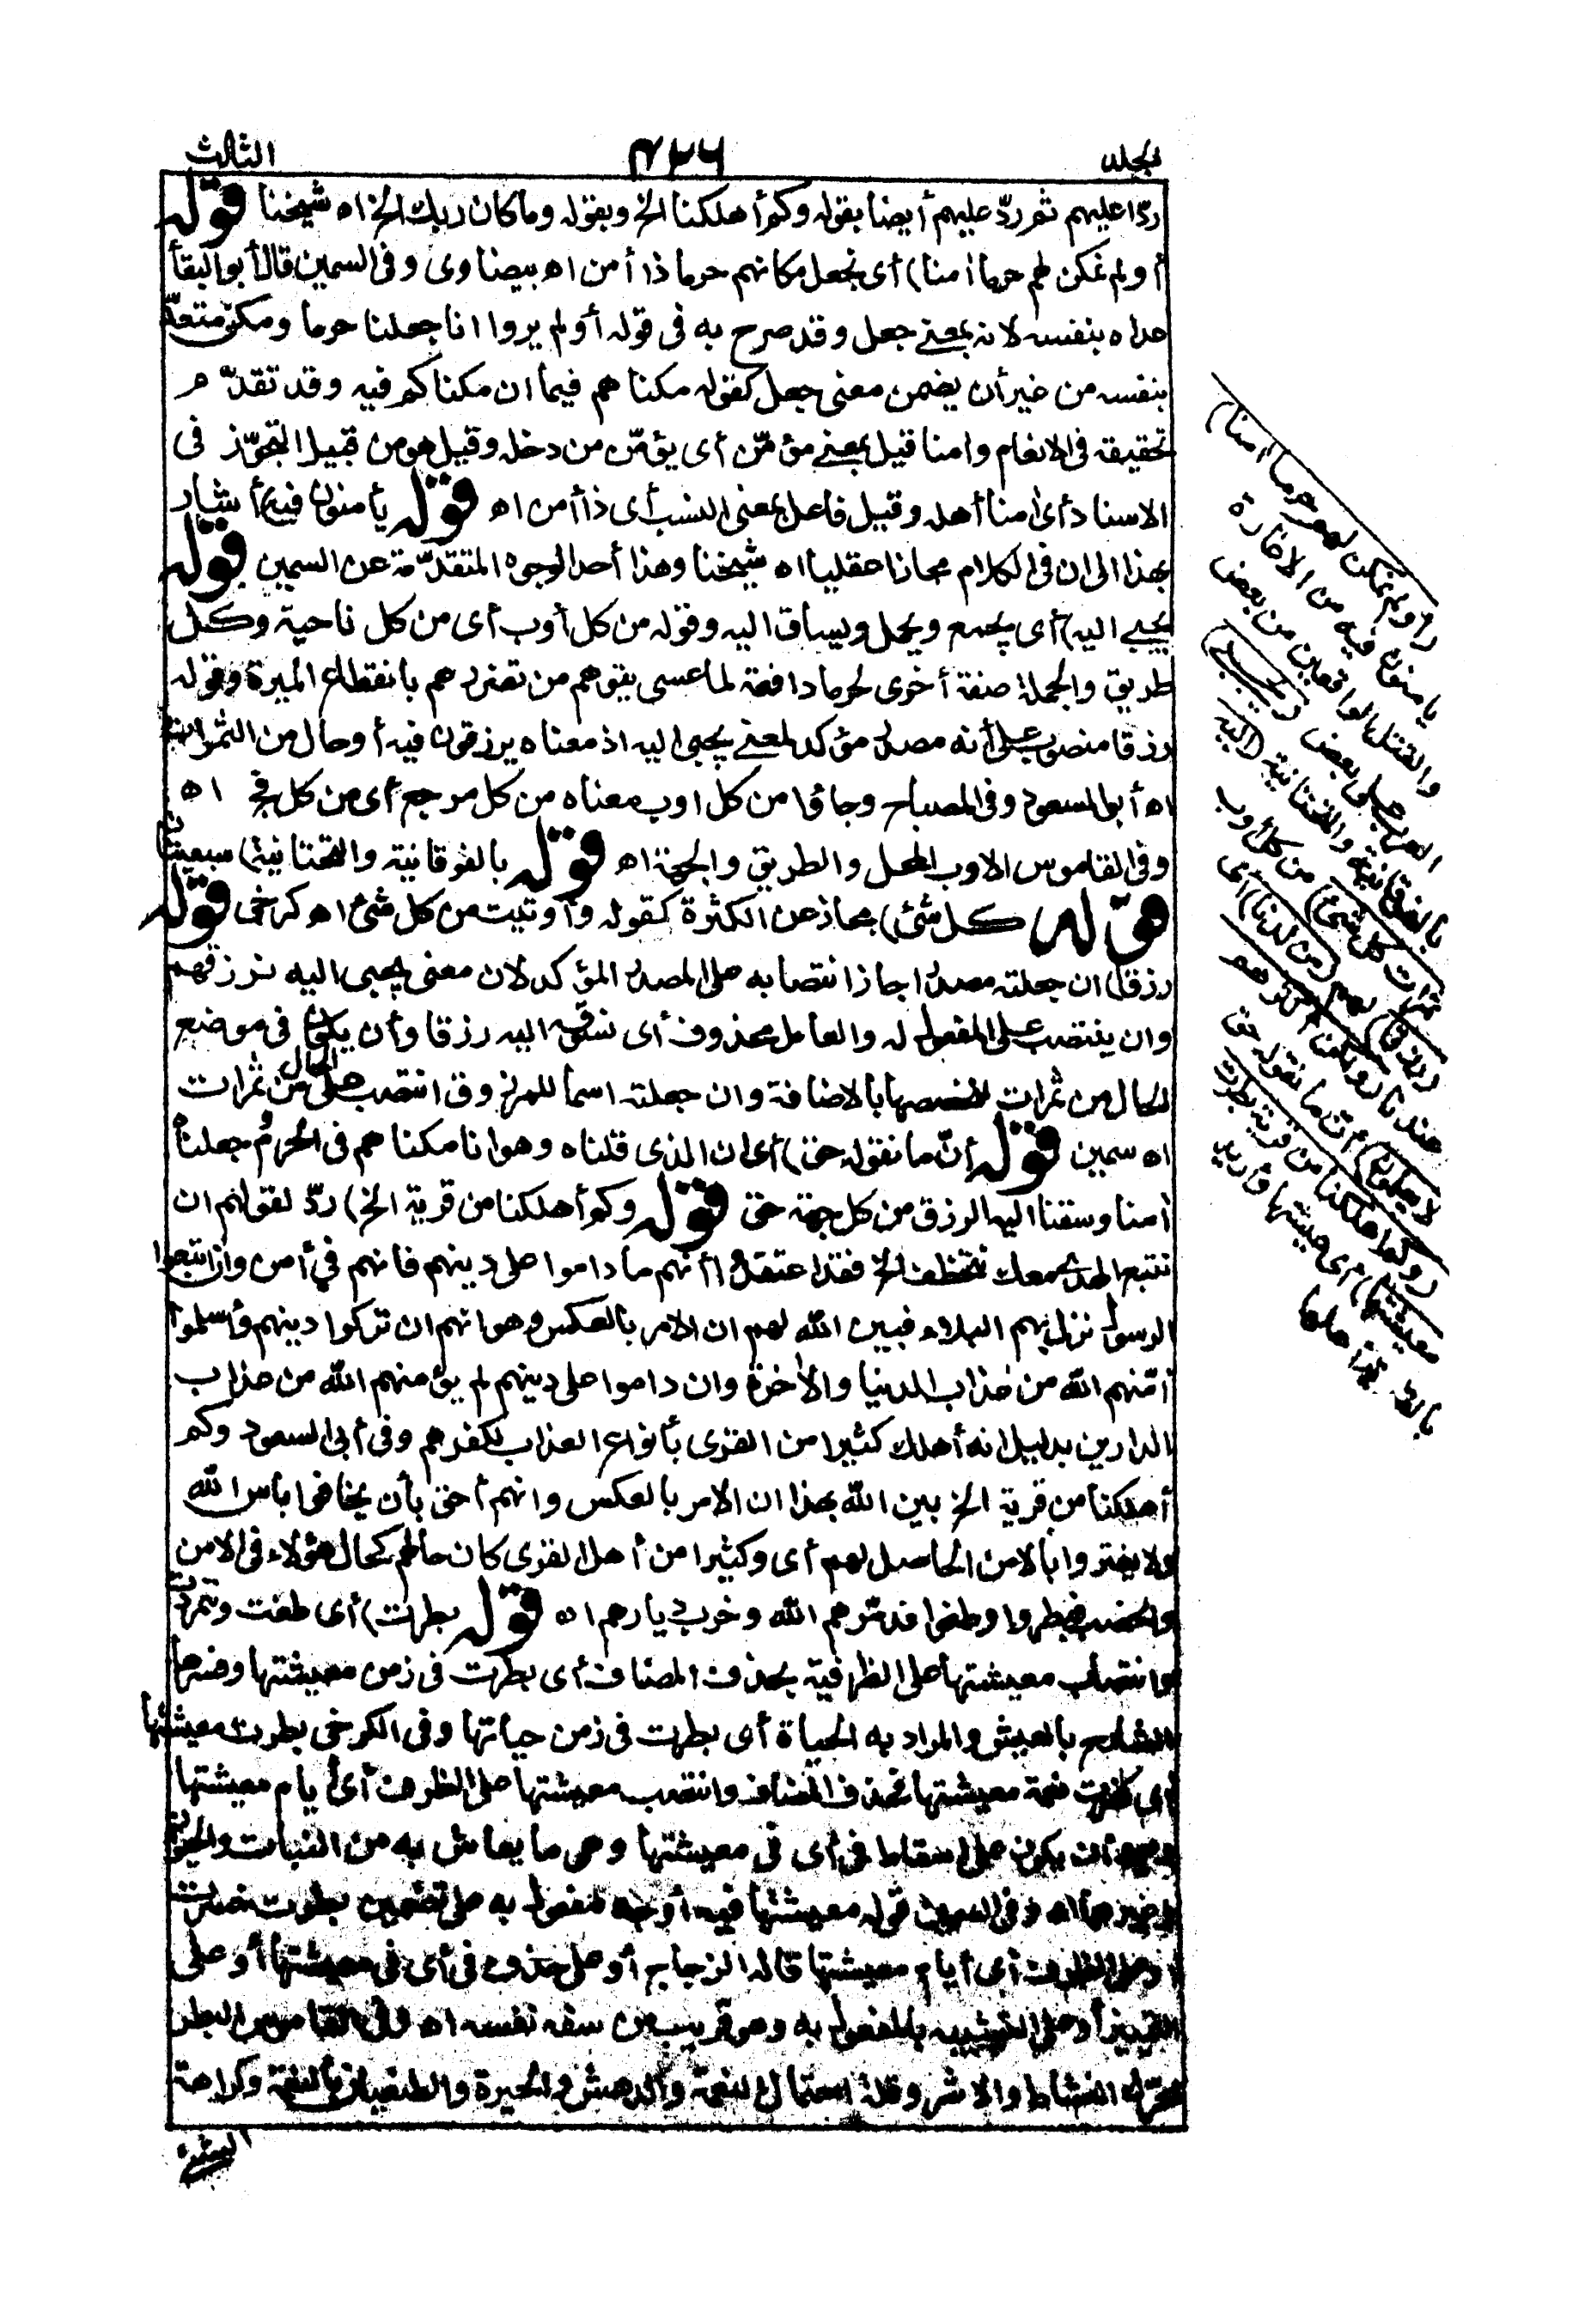 المجلد
٣٢٦
الثالث
ردّا عليهم ثم ردّ عليهم أيضا بقوله وكم أهلكنا الخ وبقوله وما كان ربك الخ اه شيخنا قوله
أولم نمكن لهم حرما آمنا) أى نجعل مكانهم حرما ذا أمن اه بيضاوى وفى السمين قال أبو البقأ
عداه بنفسه لانه بمعنى جعل وقد صرح به فى قوله أولم يروا انا جعلنا حرما ومكن متعدّ
بنفسه من غير أن يضمن معنى جعل كقوله مكناهم فيما ان مكناكم فيه وقد تقدّم
تحقيقه فى الانعام وامنا قيل بمعنى مؤمّن أى يؤمّن من دخله وقيل هو من قبيل التجوّز فى
الاسناد أى امنا أهله وقيل فاعل بمعنى النسب أى ذا أمن اه قوله يأمنون فيه) أشار
بهذا الى ان فى الكلام مجازا عقليا اه شيخنا وهذا أحد الوجوه المتقدّمة عن السمين قوله
يجبى اليه) أى يجمع ويحمل ويساق اليه وقوله من كل أوب أى من كل ناحية وكل
طريق والجملة صفة أخرى لحرما دافعة لما عسى يتوهم من تضررهم بانقطاع الميرة وقوله
رزقا منصوب على أنه مصدر مؤكد لمعنى يجبى اليه اذ معناه يرزقون فيه أو حال من الثمرات
اه أبو السعود وفى المصباح وجاؤا من كل اوب معناه من كل مرجع أى من كل فج اه
وفى القاموس الاوب المحل والطريق والجهة اه قوله بالفوقانية والتحتانية) سبعيتان
قوله كل شئ) مجاز عن الكثرة كقوله وأوتيت من كل شئ اه كرخى قوله
رزقا) ان جعلته مصدرا جاز انتصابه على المصدر المؤكد لان معنى يجبى اليه نرزقهم
وان ينتصب على المفعول له والعامل محذوف أى نسوقه اليه رزقا وأن يكون فى موضع
الحال من ثمرات لتخصصها بالاضافة وان جعلته اسما للمرزوق انتصب على الحال من ثمرات
اه سمين قوله أنّ ما نقوله حق) أى ان الذى قلناه وهو انا مكناهم فى الحرم جعلناه
آمنا وسقنا اليه الرزق من كل جهة حق قوله وكم أهلكنا من قرية الخ) ردّ لقولهم ان
نتبع الهدى معك نتخطف الخ فقد اعتقدوا أنهم ما داموا على دينهم فانهم فى أمن وان اتبعوا
الرسول نزل بهم البلاء فبين الله لهم ان الامر بالعكس وهو انهم ان تركوا دينهم وأسلموا
أمّنهم الله من عذاب الدنيا والآخرة وان داموا على دينهم لم يؤمنهم الله من عذاب
الدارين بدليل انه أهلك كثيرا من القرى بأنواع العذاب لكفرهم وفى أبى السعود وكم
أهلكنا من قرية الخ بين الله بهذا ان الامر بالعكس وانهم أحق بأن يخافوا بأس الله
ولا يغتروا بالامن الحاصل لهم أى وكثيرا من أهل القرى كان حالهم كحال هؤلاء فى الامن
والخصب فبطروا وطغوا فدمّرهم الله وخرب ديارهم اه قوله بطرت) أى طغت وتمردت
وانتصاب معيشتها على الظرفية بحذف المضاف أى بطرت فى زمن معيشتها وفسرها
الشارح بالعيش والمراد به الحياة أى بطرت فى زمن حياتها وفى الكرخى بطرت معيشتها
أى كفرت نعمة معيشتها فحذف المضاف وانتصب معيشتها على الظرف أى أيام معيشتها
ويجوز أن يكون على اسقاط فى أى فى معيشتها وهى ما يعاش به من النبات والحيوان
وغيرهما اه وفى السمين قوله معيشتها فيه أوجه مفعول به على تضمين بطرت خسرت
أو على الظرف أى أيام معيشتها قاله الزجاج أو على حذف فى أى فى معيشتها أو على
التمييز أو على التشبيه بالمفعول به وهو قريب من سفه نفسه اه وفى القاموس البطر
محرّكة النشاط والاشر وقلة احتمال النعمة والدهش والحيرة والطغيان بالنعمة وكراهة
الشئ
(أولم نمكن لهم حرما آمنا)
يأمنون فيه من الاغارة
والقتل الواقعين من بعض
العرب على بعض (يجبى)
بالفوقانية والتحتانية (اليه
ثمرات كل شئ) من كل أوب
(رزقا) لهم (من لدنا) أى
عندنا (ولكن أكثرهم
لا يعلمون) أن ما نقوله حق
(وكم أهلكنا من قرية بطرت
معيشتها) أى عيشتها وأريد
بالقرية أهلها